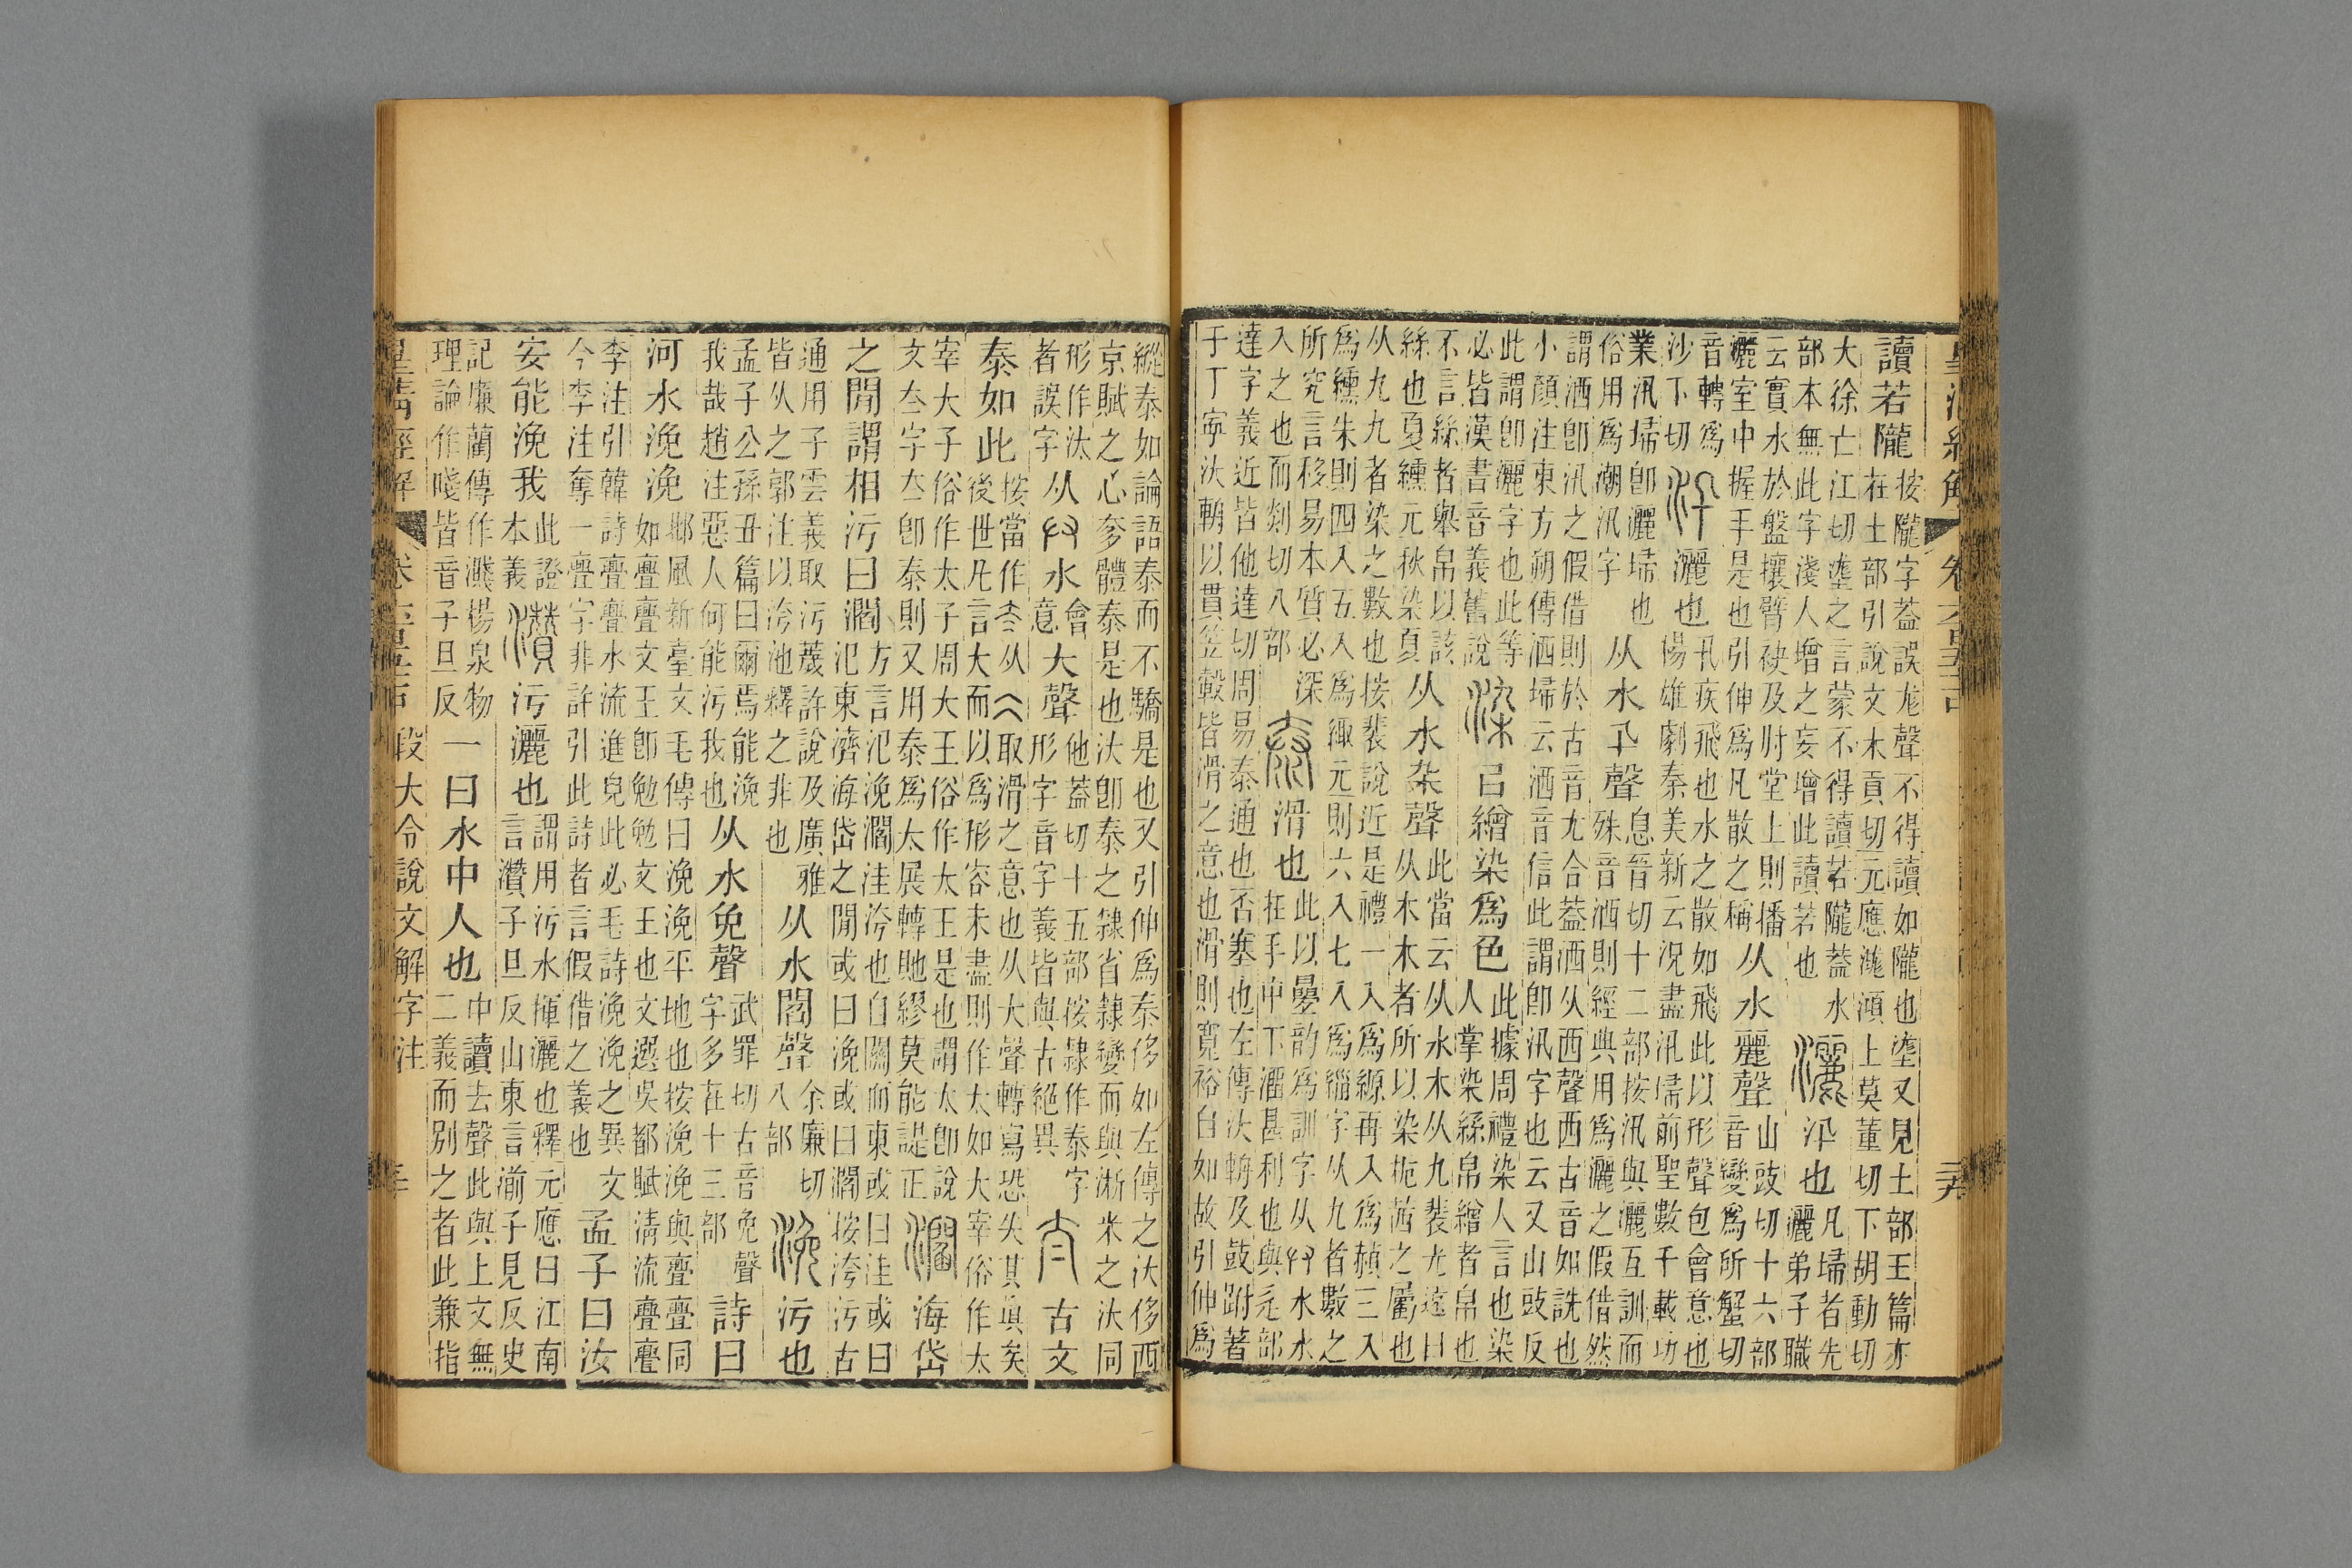 讀若隴
按隴字葢誤尨聲不得讀如隴也塗又見土部王篇亦
在土部引說文木貢切元應漨澒上莫董切下胡動切
大徐亡江切塗之言蒙不得讀若隴葢水
部本無此字淺人增之妄增此讀若也
灑汛也
凡埽者先
灑弟子職
云實水於盤攘臂袂及肘堂上則播
灑室中握手是也引伸爲凡散之稱
从水麗聲
山豉切十六部
音變爲所蟹切
音轉爲
沙下切
汛灑也
卂疾飛也水之散如飛此以形聲包會意也
楊雄劇秦美新云況盡汛埽前聖數千載功
業汛埽卽灑埽也
俗用爲潮汛字
从水卂聲
息晉切十二部按汛與灑互訓而
殊音洒則經典用爲灑之假借然
謂洒卽汛之假借則於古音尤合葢洒从西聲西古音如詵也
小顏注東方朔傳洒埽云洒音信此謂卽汛字也云又山豉反
此謂卽灑字也此等
必皆漢書音義舊說
染㠯繒染爲色
此據周禮染人言也染
人掌染絲帛繒者帛也
不言絲者舉帛以該
絲也夏纁元秋染夏
从水杂聲
此當云从水木从九裴光遠曰
从木木者所以染梔茜之屬也
从九九者染之數也按裴說近是禮一入爲縓再入爲赬三入
爲纁朱則四入五入爲緅元則六入七入爲緇字从九者數之
所究言移易本質必深
入之也而剡切八部
泰滑也
此以曡韵爲訓字从廾水水
在手中下澑甚利也與辵部
達字義近皆他達切周易泰通也否塞也左傳汏輈及鼓跗著
于丁寧汏輈以貫笠轂皆滑之意也滑則寬裕自如故引伸爲
縱泰如論語泰而不驕是也又引伸爲泰侈如左傳之汏侈西
京賦之心奓體泰是也汏卽泰之隸省隸變而與淅米之汏同
形作汰
者誤字
从廾水
會
意
大聲
他葢切十五部按隸作泰字
形字音字義皆與古絕異
夳古文
泰如此
按當作夳从仌取滑之意也从大聲轉寫恐失其真矣
後世凡言大而以爲形容未盡則作太如大宰俗作太
宰大子俗作太子周大王俗作太王是也謂太卽說
文夳字夳卽泰則又用泰爲太展轉貤繆莫能諟正
海岱
之閒謂相污曰
方言氾浼洼洿也自關而東或曰洼或曰
氾東濟海岱之閒或曰浼或曰按洿污古
通用子雲義取污薉許說及廣雅
皆从之郭注以洿池釋之非也
从水閻聲
余廉切
八部
浼污也
孟子公孫丑篇曰爾焉能浼
我哉趙注惡人何能污我也
从水免聲
武罪切古音免聲
字多在十三部
詩曰
河水浼浼
邶風新臺文毛傳曰浼浼平地也按浼浼與亹亹同
如亹亹文王卽勉勉文王也文選吳都賦淸流亹亹
李注引韓詩亹亹水流進皃此必毛詩浼浼之異文
今李注奪一亹字非許引此詩者言假借之義也
孟子曰汝
安能浼我
此證
本義
灒污灑也
謂用污水揮灑也釋元應曰江南
言灒子旦反山東言湔子見反史
記廉藺傳作濺楊泉物
理論作皆音子旦反
一曰水中人也
中讀去聲此與上文無
二義而別之者此兼指
皇清經解 段大令說文解字注